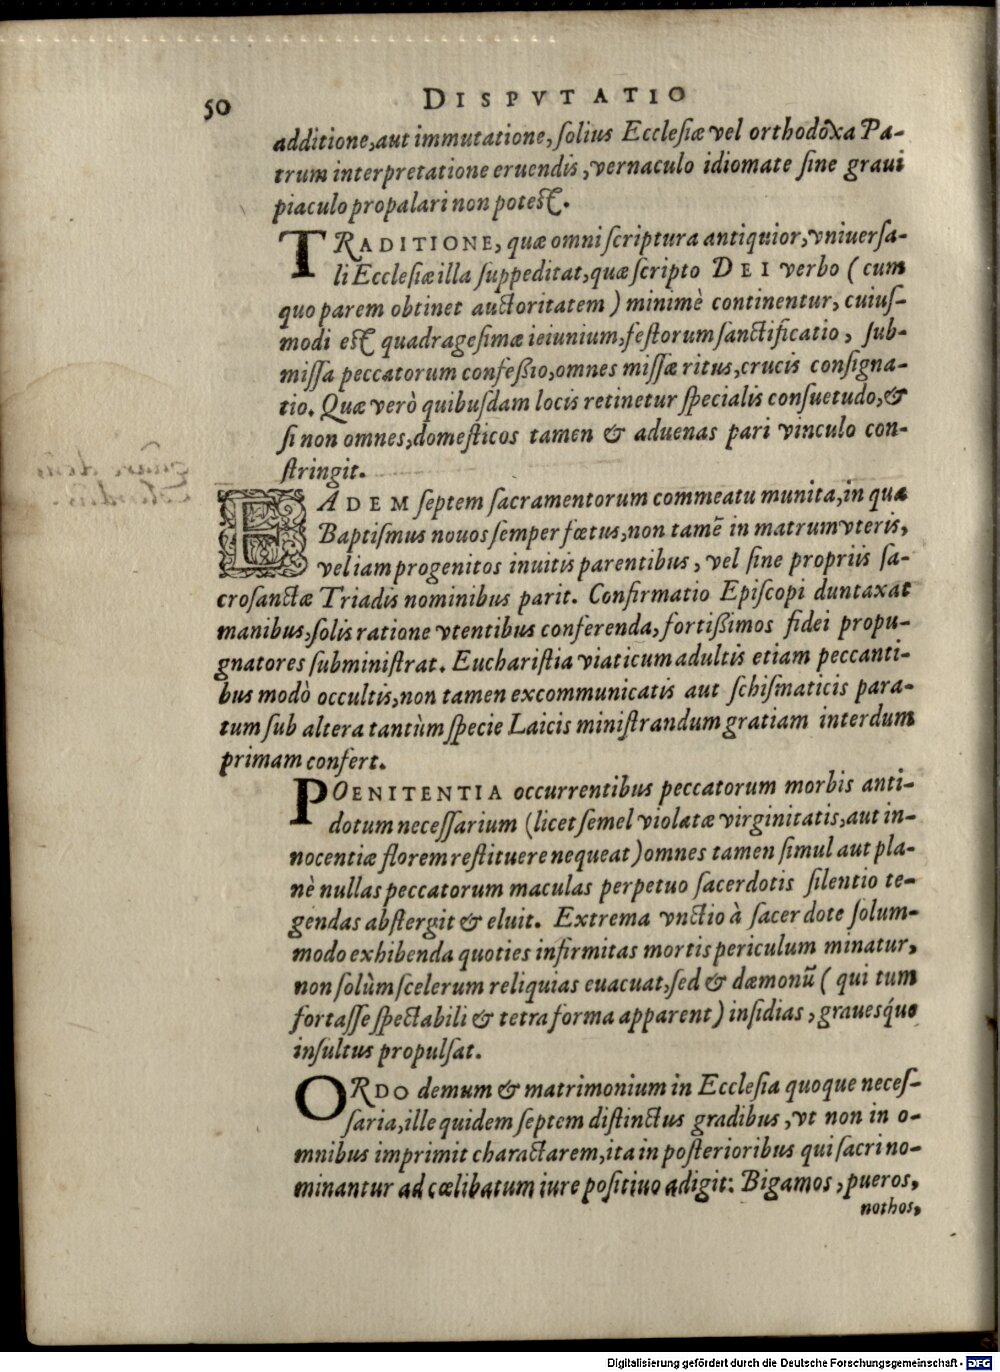 50 DISPVTATIO
additione, aut immutatione, ſolius Eccleſiæ vel orthodoxa Pa-
trum interpretatione eruendis, vernaculo idiomate ſine graui
piaculo propalari non poteſt.
TRADITIONE, quæ omni ſcriptura antiquior, vniuerſa-
li Eccleſiæ illa ſuppeditat, quæ ſcripto DEI verbo (cum
quo parem obtinet auctoritatem) minimè continentur, cuiuſ-
modi eſt quadrageſimæ ieiunium, feſtorum ſanctificatio, ſub-
miſſa peccatorum confeßio, omnes miſſæ ritus, crucis conſigna-
tio. Quæ verò quibuſdam locis retinetur ſpecialis conſuetudo, &
ſi non omnes, domeſticos tamen & aduenas pari vinculo con-
ſtringit.
EADEM ſeptem ſacramentorum commeatu munita, in qua
Baptiſmus nouos ſemper fœtus, non tamē in matrum vteris,
vel iam progenitos inuitis parentibus, vel ſine propriis ſa-
croſanctæ Triadis nominibus parit. Confirmatio Epiſcopi duntaxat
manibus, ſolis ratione vtentibus conferenda, fortißimos fidei propu-
gnatores ſubminiſtrat. Euchariſtia viaticum adultis etiam peccanti-
bus modò occultis, non tamen excommunicatis aut ſchiſmaticis para-
tum ſub altera tantùm ſpecie Laicis miniſtrandum gratiam interdum
primam confert.
POENITENTIA occurrentibus peccatorum morbis anti-
dotum neceſſarium (licet ſemel violatæ virginitatis, aut in-
nocentiæ florem reſtituere nequeat) omnes tamen ſimul aut pla-
nè nullas peccatorum maculas perpetuo ſacerdotis ſilentio te-
gendas abſtergit & eluit. Extrema vnctio à ſacerdote ſolum-
modo exhibenda quoties infirmitas mortis periculum minatur,
non ſolùm ſcelerum reliquias euacuat, ſed & dæmonū (qui tum
fortaſſe ſpectabili & tetra forma apparent) inſidias, graueſq́ue
inſultus propulſat.
ORDO demum & matrimonium in Eccleſia quoque neceſ-
ſaria, ille quidem ſeptem diſtinctus gradibus, vt non in o-
mnibus imprimit charactarem, ita in poſterioribus qui ſacri no-
minantur ad cœlibatum iure poſitiuo adigit: Bigamos, pueros,
nothos,
Digitalisierung gefördert durch die Deutsche Forschungsgemeinschaft - DFG